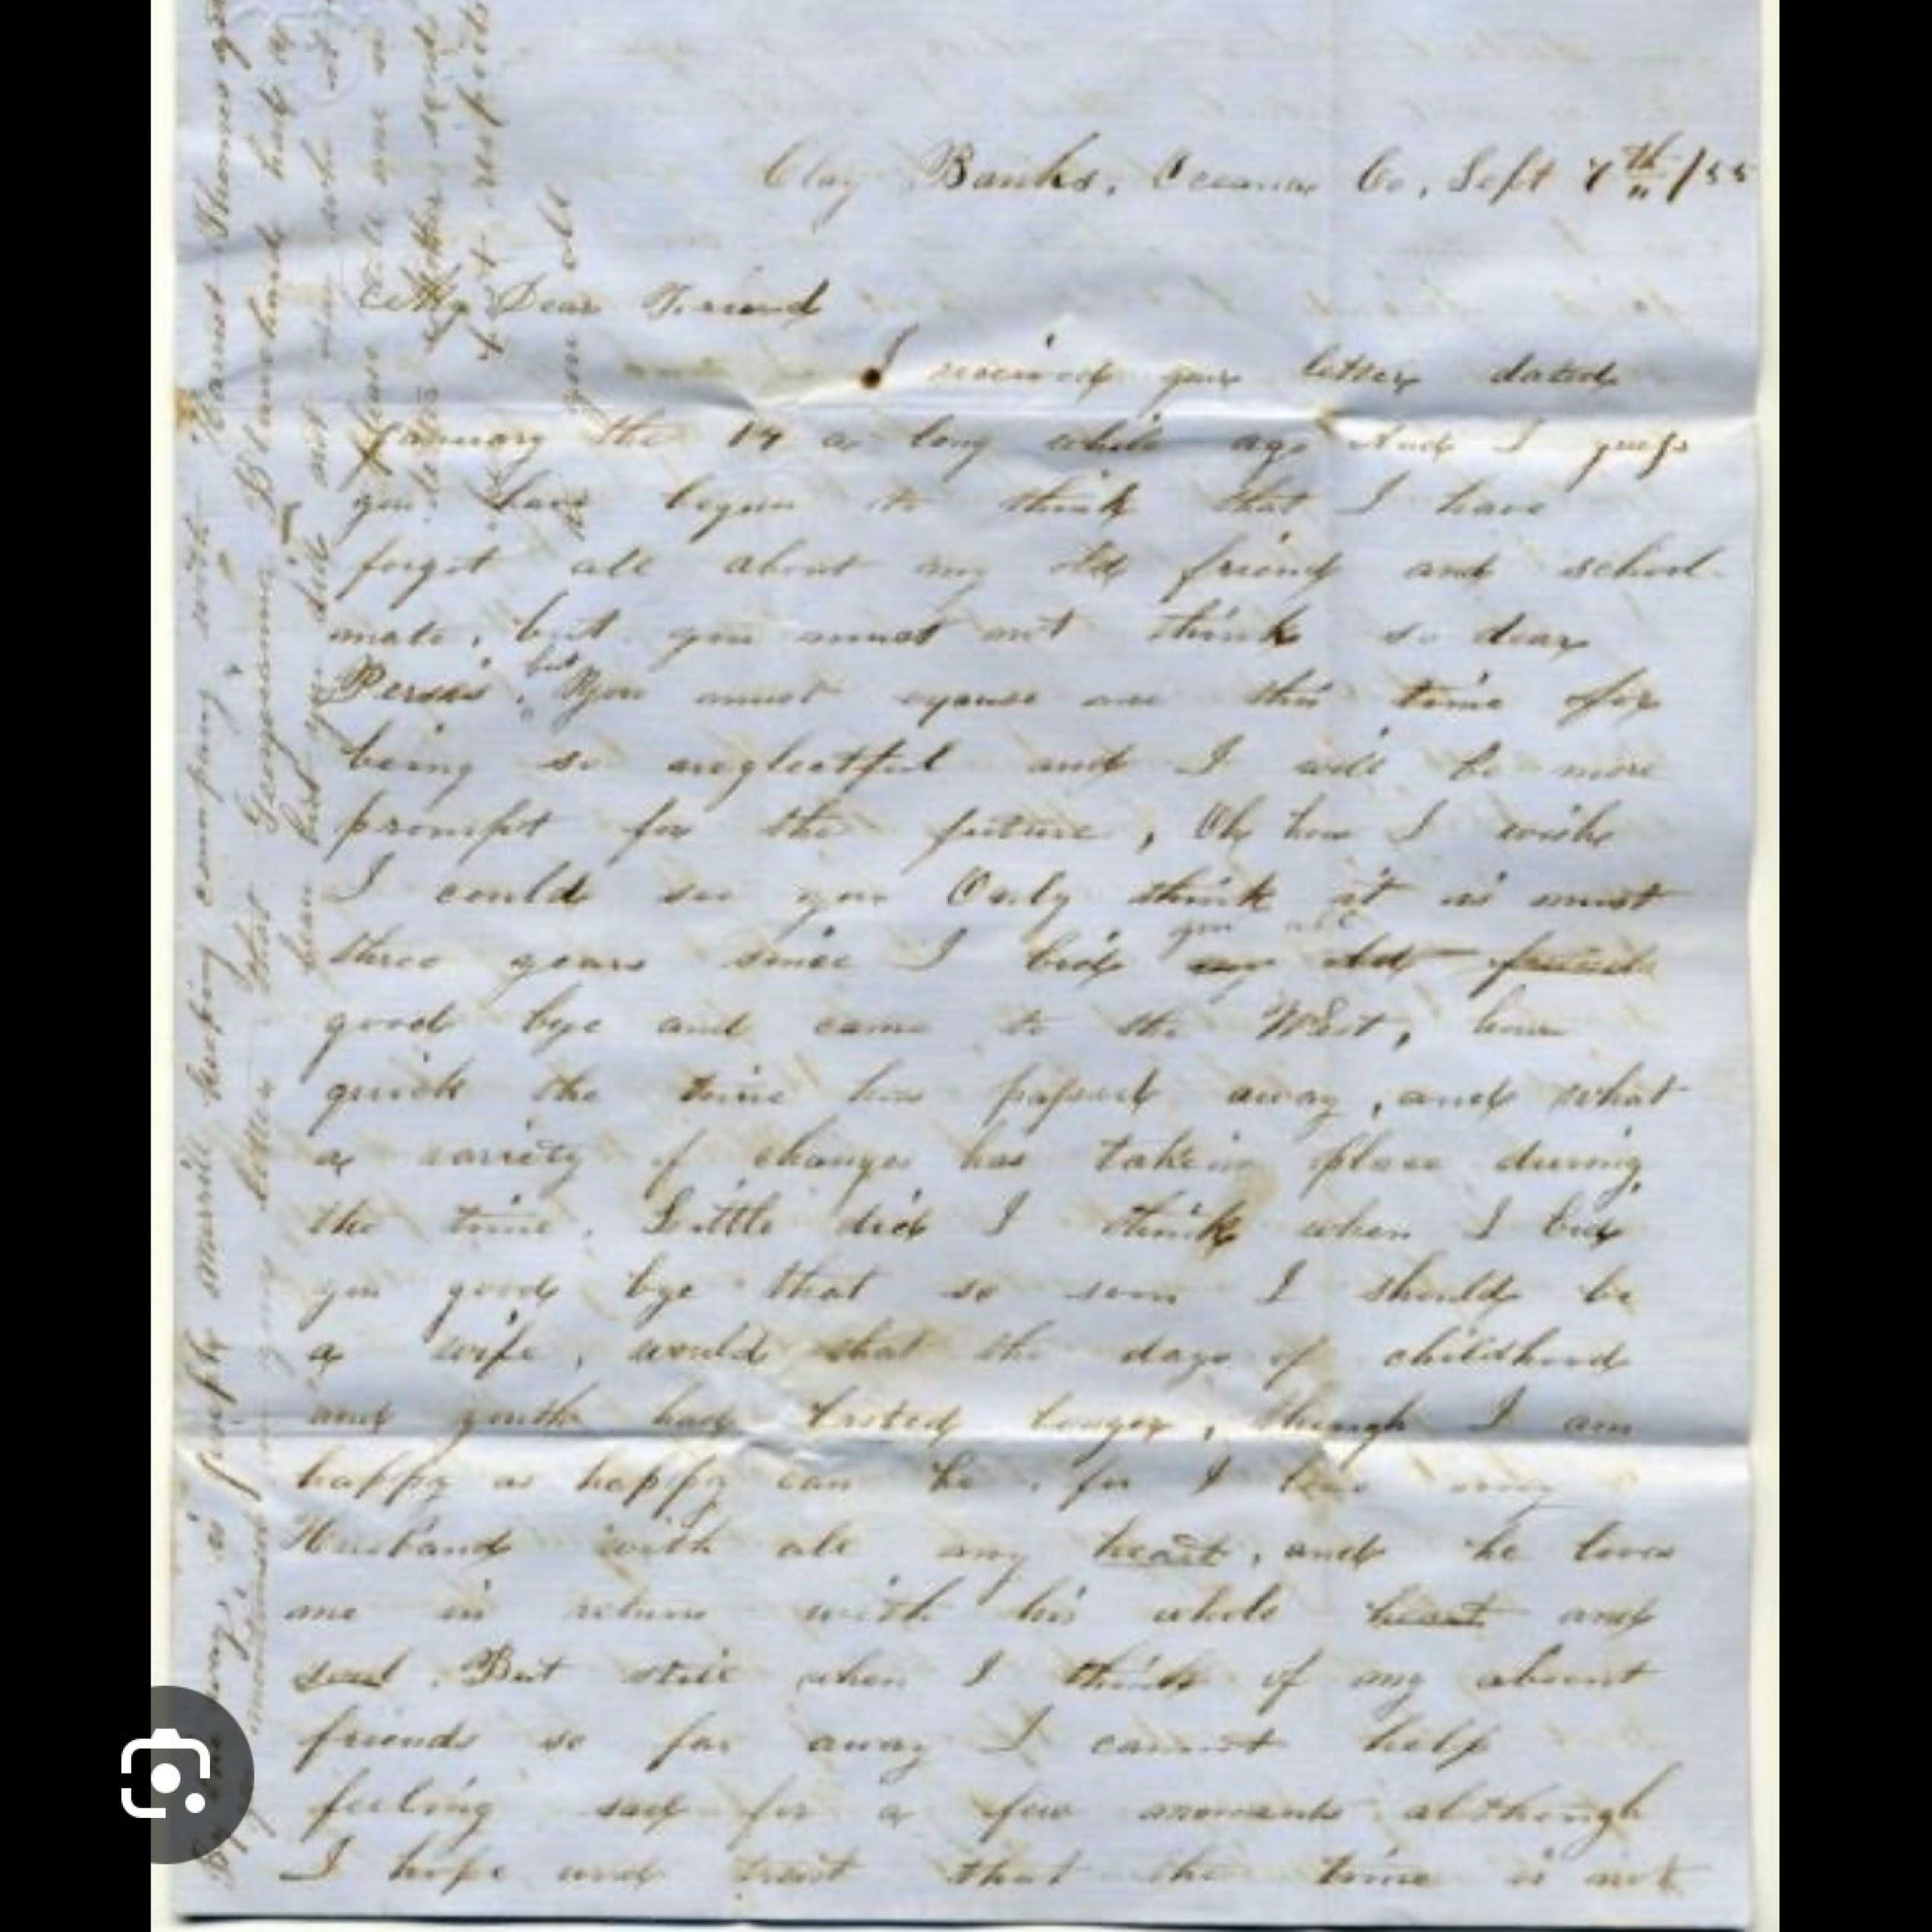 Clay Banks, Oceana Co, Sept 7th /55
My Dear Friend
I received your letter dated
January the 14 a long while ago And I guess
you have begun to think that I have
forgot all about my old friend and school-
mate, but you must not think so dear
Persis, but You must excuse me this time for
being so neglectful and I will be more
prompt for the future, Oh how I wish
I could see you Only think it is most
you all
three years since I bid my old friends
good bye and came to the West, how
quick the time has passed away, and what
a variety of changes has taken place during
the time. Little did I think when I bid
you good bye that so soon I should be
a wife, would that the days of childhood
and youth had lasted longer, though I am
happy as happy can be, for I love my
Husband with all my heart, and he loves
me in return with his whole heart and
soul. But still when I think of my absent
friends so far away I cannot help
feeling sad for a few moments although
I hope and trust that the time is not
By the way is Frank Merrill keeping company with Harriet Thomas
you mentioned in your letter that Georgeanna Blanchard had a
beau but you did not say who
Please
Mother sends
respects